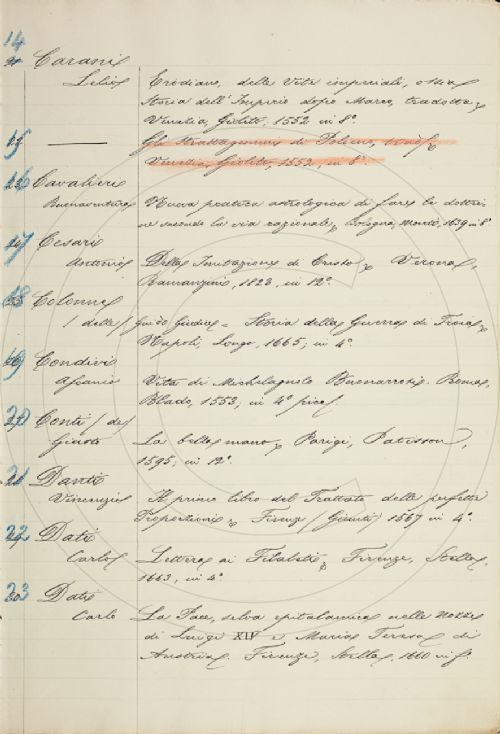 14 Carani
Lelio Erodiano, delle Vite imperiali, ossia
Storia dell'Imperio dopo Marco, tradotta
Venezia, Giolito, 1552 in 8°.
15 — Gli Strattagemmi di Polieno,
Venezia, Giolito, 1552, in 8°.
16 Cavalieri
Buonaventura Nuova prattica astrologica di fare le dottri-
ne secondo la via razionale, Bologna, Monti, 1639 in 8°
17 Cesari
Antonio Della Imitazione di Cristo, Verona,
Ramanzini, 1823, in 12°.
18 Colonne
/ delle / Guido Giudice = Storia della Guerra di Troia,
Napoli, Longo, 1665; in 4°.
19 Condivi
Ascanio Vita di Michelagnolo Buonarroti. Roma,
Blado, 1553; in 4° picc.
20 Conti / de /
Giusto La bella mano, Parigi, Patisson,
1595; in 12°.
21 Danti
Vincenzio Il primo libro del Trattato delle perfette
Proportioni, Firenze / Giunti / 1567 in 4°.
22 Dati
Carlo Lettera ai Filaleti, Firenze, Stella,
1663, in 4°.
23 Dati
Carlo La Pace, selva epitalamica nelle Nozze
di Luigi XIV e Maria Teresa di
Austria. Firenze, Stella, 1660 in f°.